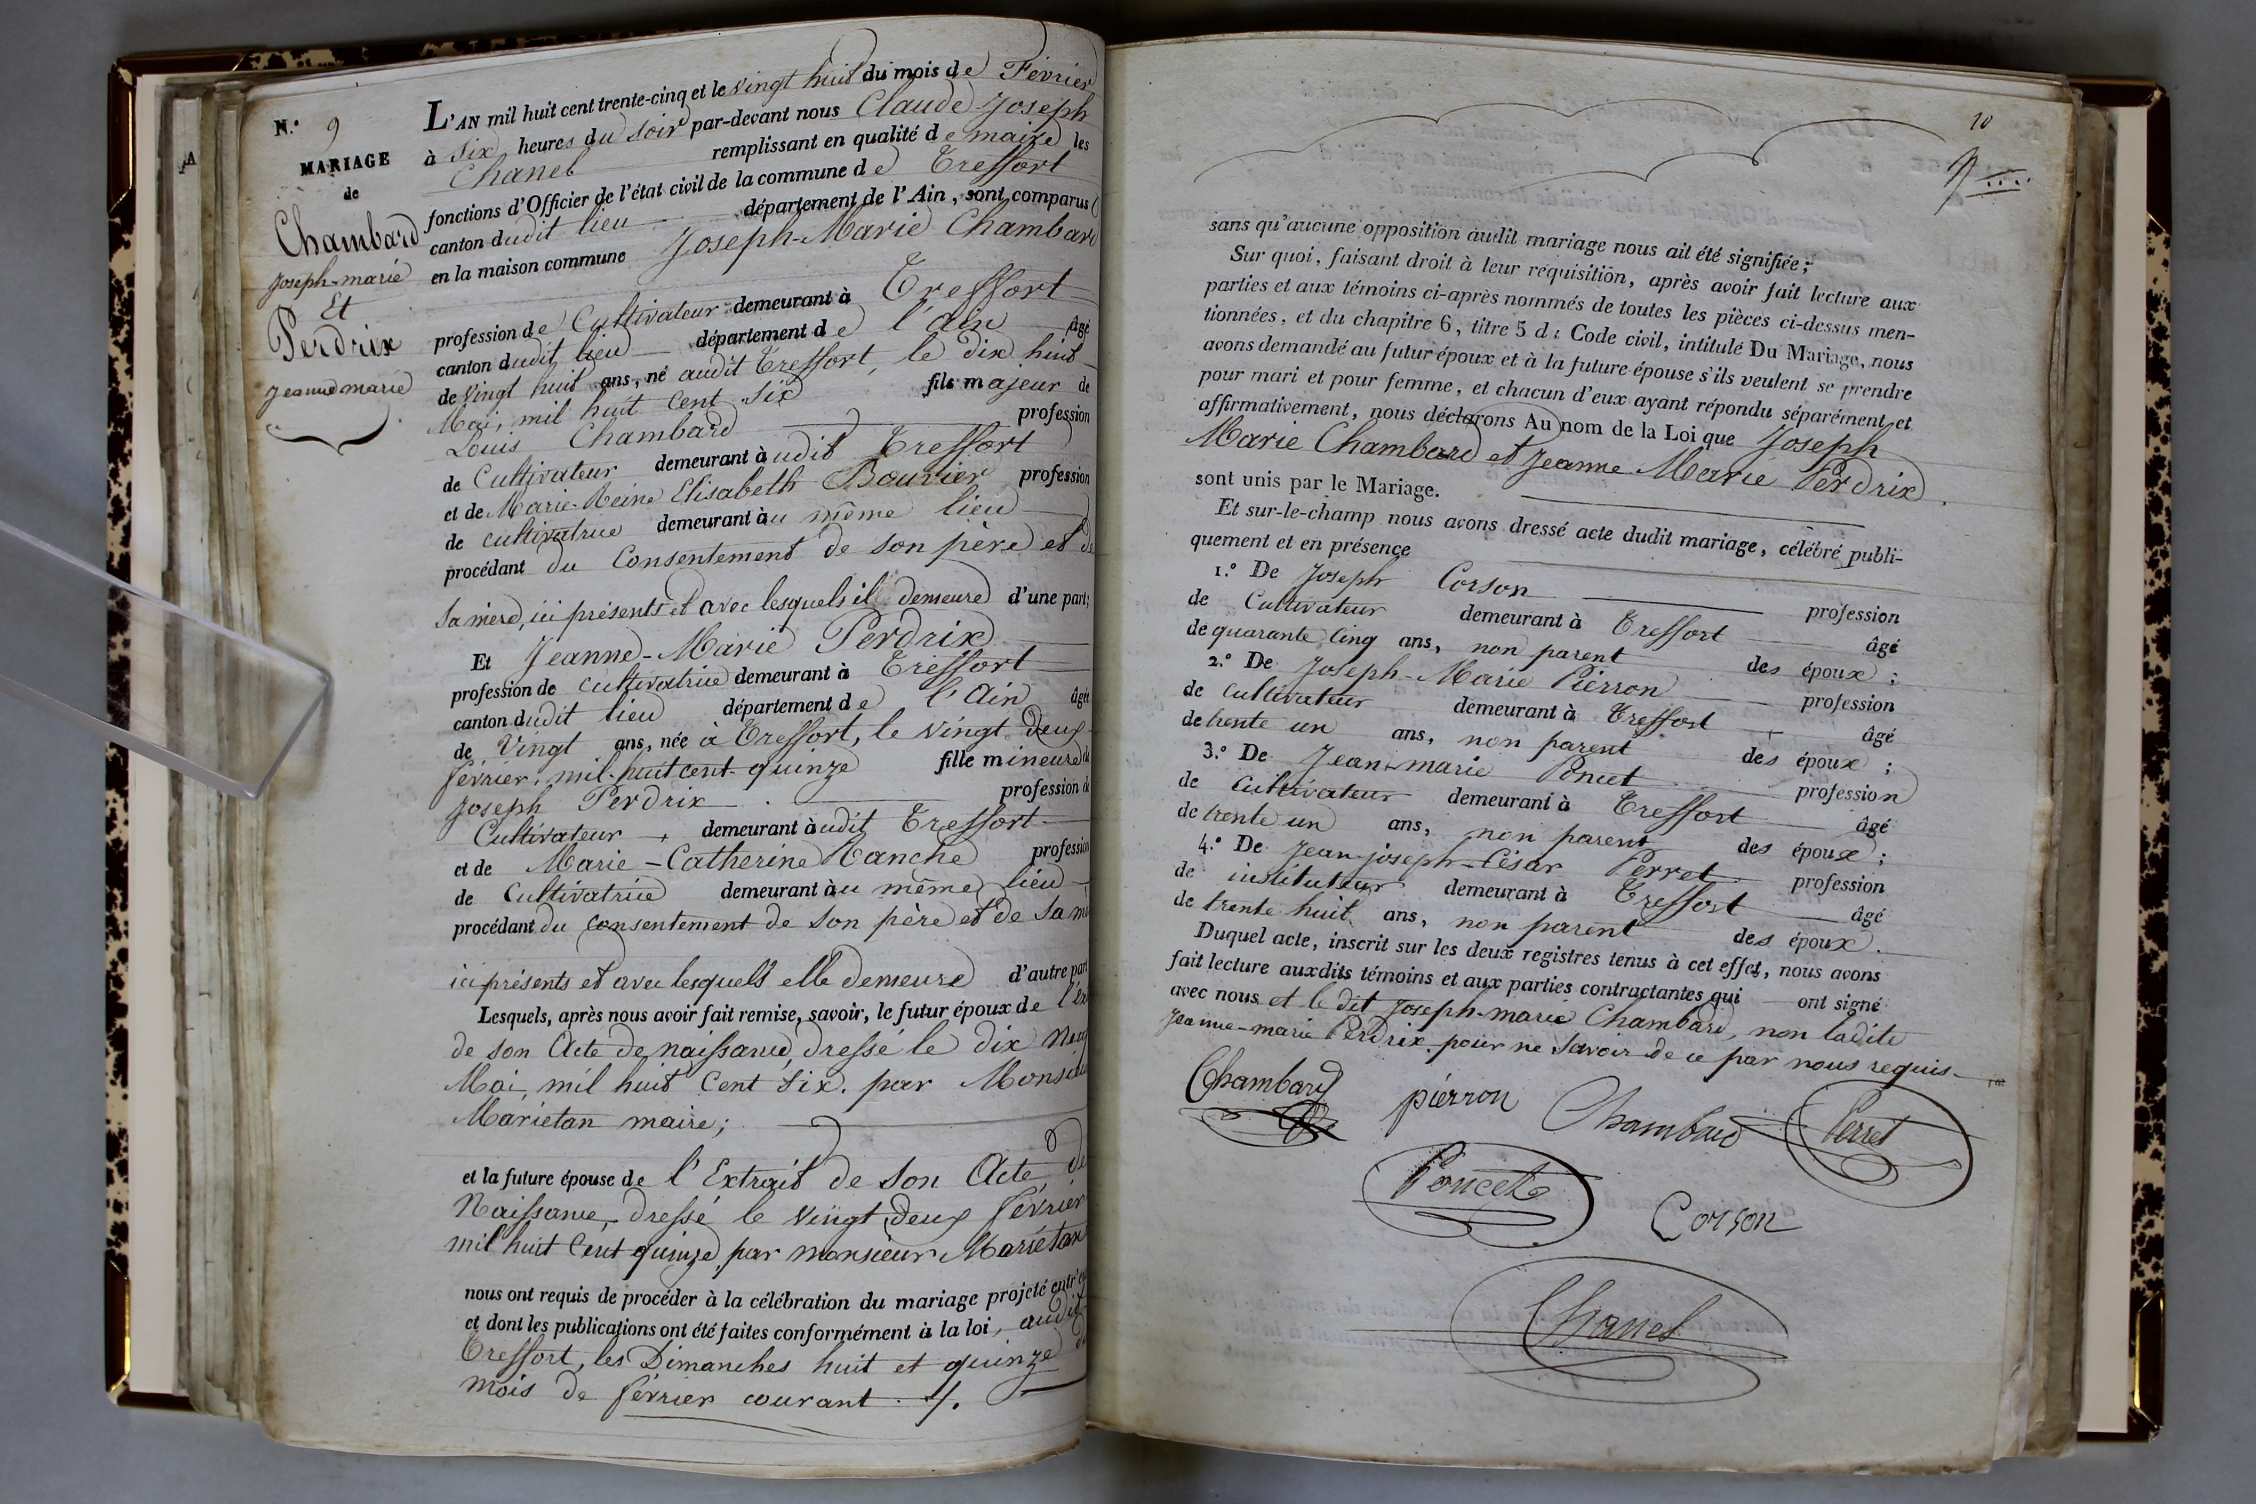 N.º 9
MARIAGE
de
Chambard
Joseph-marie
Et
Perdrix
Jeanne marie
L'AN mil huit cent trente-cinq et le vingt huit du mois de Février
à Six heures du soir par-devant nous Claude Joseph
Chanel remplissant en qualité de maire les
fonctions d'Officier de l'état civil de la commune de Treffort
canton dudit lieu département de l'Ain, sont comparus
en la maison commune Joseph-Marie Chambard
profession de Cultivateur demeurant à Treffort
canton dudit lieu département de l'ain âgé
de vingt huit ans, né audit Treffort, le dix huit
Mai, mil huit cent six fils majeur de
Louis Chambard profession
de Cultivateur demeurant àudit Treffort
et de Marie-Reine Elisabeth Bouvier profession
de cultivatrice demeurant àu même lieu
procédant du Consentement de son père et de
sa mère, ici présents et avec lesquels il demeure d'une part;
Et Jeanne-Marie Perdrix
profession de cultivatrice demeurant à Treffort
canton dudit lieu département de l'Ain âgée
de Vingt ans, née à Treffort, le vingt deux
février, mil-huit cent-quinze fille mineure de
Joseph Perdrix profession de
Cultivateur, demeurant àudit Treffort
et de Marie-Catherine Tanche profession
de Cultivatrice demeurant àu même lieu
procédant du consentement de son père et de sa
ici présents et avec lesquels elle demeure d'autre part
Lesquels, après nous avoir fait remise, savoir, le futur époux de l'ex
de son Acte de naissance, dressé le dix neuf
Mai, mil huit Cent Six. par Monsieur
Marietan maire;
et la future épouse de l'Extrait de son Acte de
Naissance, dressé le vingt deux février
mil huit Cent quinze, par monsieur Mariétan
nous ont requis de procéder à la célébration du mariage projeté entr'eux
et dont les publications ont été faites conformément à la loi, audit
Treffort, les Dimanches huit et quinze du
mois de février courant.
10
9
sans qu'aucune opposition audit mariage nous ait été signifiée;
Sur quoi, faisant droit à leur réquisition, après avoir fait lecture aux
parties et aux témoins ci-après nommés de toutes les pièces ci-dessus men-
tionnées, et du chapitre 6, titre 5 du Code civil, intitulé Du Mariage, nous
avons demandé au futur époux et à la future épouse s'ils veulent se prendre
pour mari et pour femme, et chacun d'eux ayant répondu séparément et
affirmativement, nous déclarons Au nom de la Loi que Joseph
Marie Chambard et Jeanne Marie Perdrix
sont unis par le Mariage.
Et sur-le-champ nous avons dressé acte dudit mariage, célébré publi-
quement et en présence
1.º De Joseph Corson profession
de Cultivateur demeurant à Treffort âgé
de quarante cinq ans, non parent des époux;
2.º De Joseph-Marie Pierron profession
de cultivateur demeurant à Treffort âgé
de trente un ans, non parent des époux;
3.º De Jean-marie Poncet profession
de Cultivateur demeurant à Treffort âgé
de trente un ans, non parent des époux;
4.º De Jean-joseph-César Perret profession
de instituteur demeurant à Treffort âgé
de trente huit ans, non parent des époux.
Duquel acte, inscrit sur les deux registres tenus à cet effet, nous avons
fait lecture auxdits témoins et aux parties contractantes qui ont signé
avec nous et le dit Joseph-marie Chambard, non ladite
Jeanne-marie Perdrix pour ne savoir de ce par nous requis
Chambard pierron Chambard Perret
Poncet Corson
Chanel